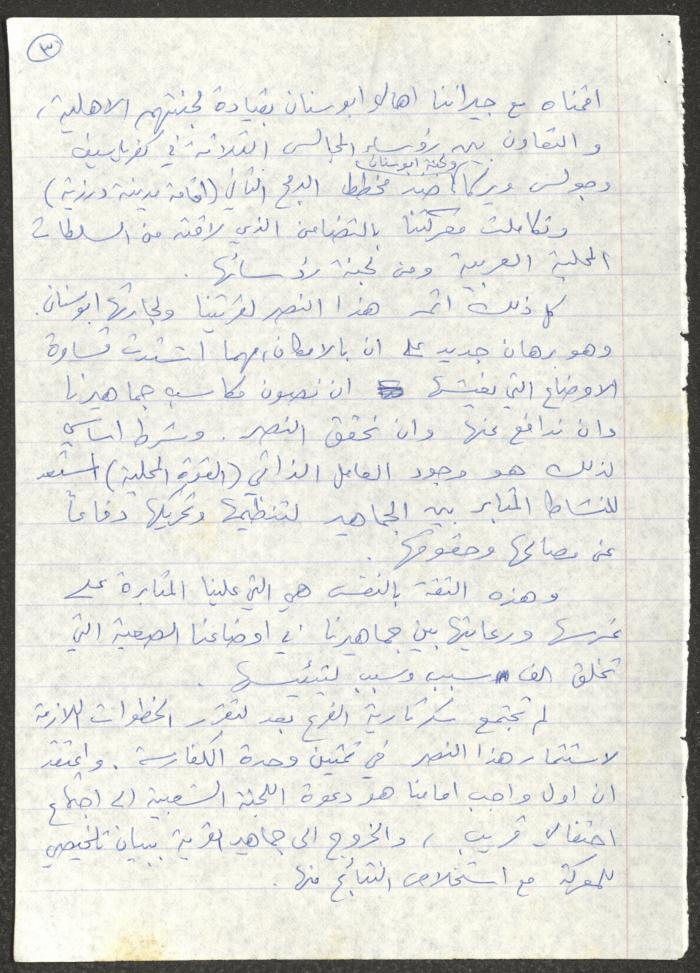 ٣
اقمناه مع جيراننا اهالي ابوسنان بقيادة لجنتهم الاهلية،
والتعاون بين رؤساء المجالس الثلاثة في كفرياسيف
ولجنة ابوسنان
وجولس ويركا، ضد مخطط الدمج الثاني (اقامة مدينة درزية)
وتكاملت معركتنا بالتضامن الذي لاقته من السلطات
المحلية العربية ومن لجنة رؤسائها.
كل ذلك اثمر هذا النصر لقريتنا ولجارتها ابوسنان.
وهو برهان جديد على ان بالامكان، مهما اشتدت قساوة
الاوضاع التي نعيشها ان نصون مكاسب جماهيرنا
وان ندافع عنها وان نحقق النصر. وشرط اساسي
لذلك هو وجود العامل الذاتي (القوة المحلية) المستعد
للنشاط المثابر بين الجماهير لتنظيمها وتحريكها دفاعاً
عن مصالحها وحقوقها.
وهذه الثقة بالنفس هي التي علينا المثابرة على
غرسها ورعايتها بين جماهيرنا في اوضاعنا الصعبة التي
تخلق الف سبب وسبب لتيئيسها.
لم تجتمع سكرتارية الفرع بعد لتقرر الخطوات اللازمة
لاستثمار هذا النصر في تمتين وحدة الكفارسة. واعتقد
ان اول واجب امامنا هو دعوة اللجنة الشعبية الى اجتماع
احتفالي قريب، والخروج الى جماهير القرية ببيان تلخيصي
للمعركة مع استخلاص النتائج منها.